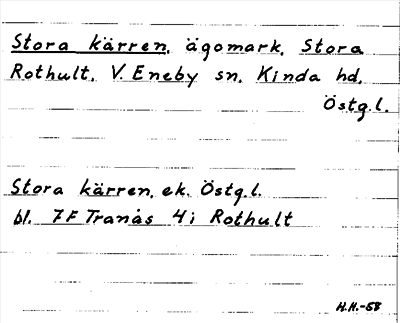 Stora kärren, ägomark, Stora
Rothult, V. Eneby sn, Kinda hd,
Östg.l.
Stora kärren, ek. Östg.l.
bl. 7F Tranås 4i Rothult
H.H.-58